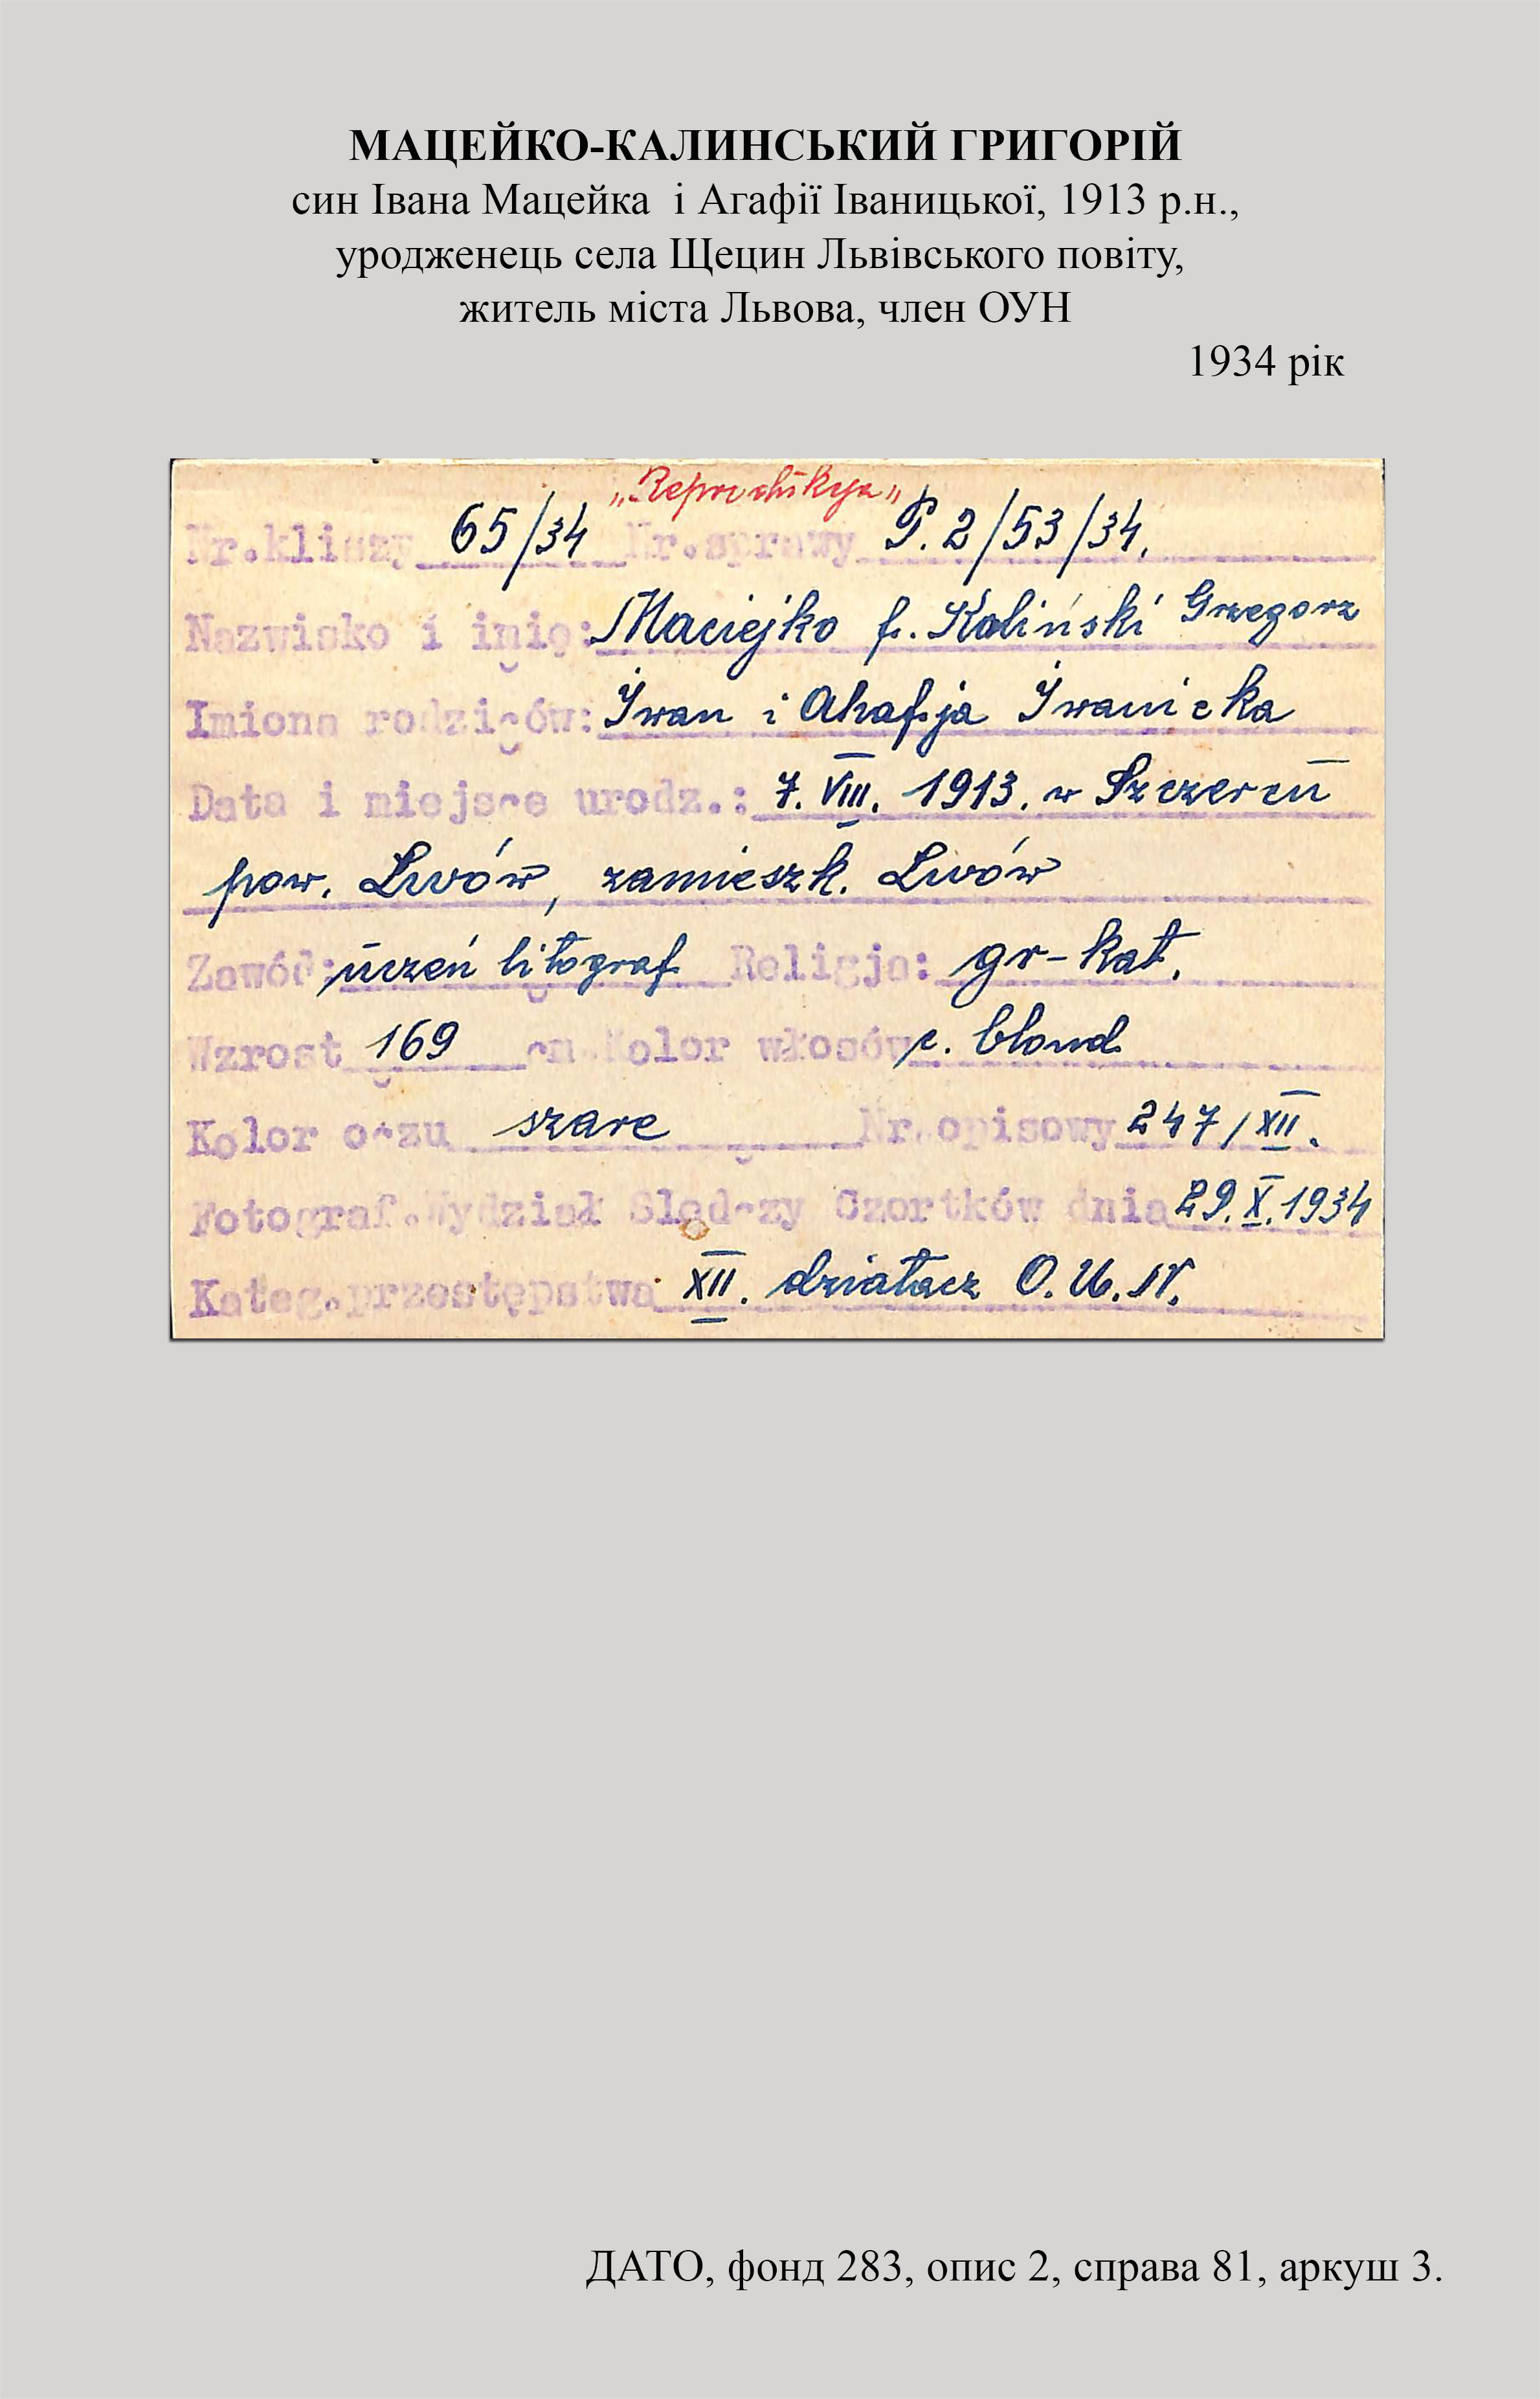 МАЦЕЙКО-КАЛИНСЬКИЙ ГРИГОРІЙ
син Івана Мацейка і Агафії Іваницької, 1913 р.н.,
уродженець села Щецин Львівського повіту,
житель міста Львова, член ОУН
1934 рік
„Reprodukcja"
Nr.kliszy 65/34 Nr.sprawy P. 2/53/34.
Nazwisko i imię: Maciejko f. Kaliński Grzegorz
Imiona rodziców: Iwan i Ahafja Iwanicka
Data i miejsce urodz.: 7. VIII. 1913. w
pow. Lwów, zamieszk. Lwów
Zawód: uczeń litograf Religja: gr-kat.
Wzrost 169 cm. Kolor włosów c. blond
Kolor oczu szare Nr.opisowy 247/XII.
Fotograf.Wydział Śledczy Czortków dnia 29.X.1934
Kateg.przestępstwa XII. działacz O.U.N.
ДАТО, фонд 283, опис 2, справа 81, аркуш 3.